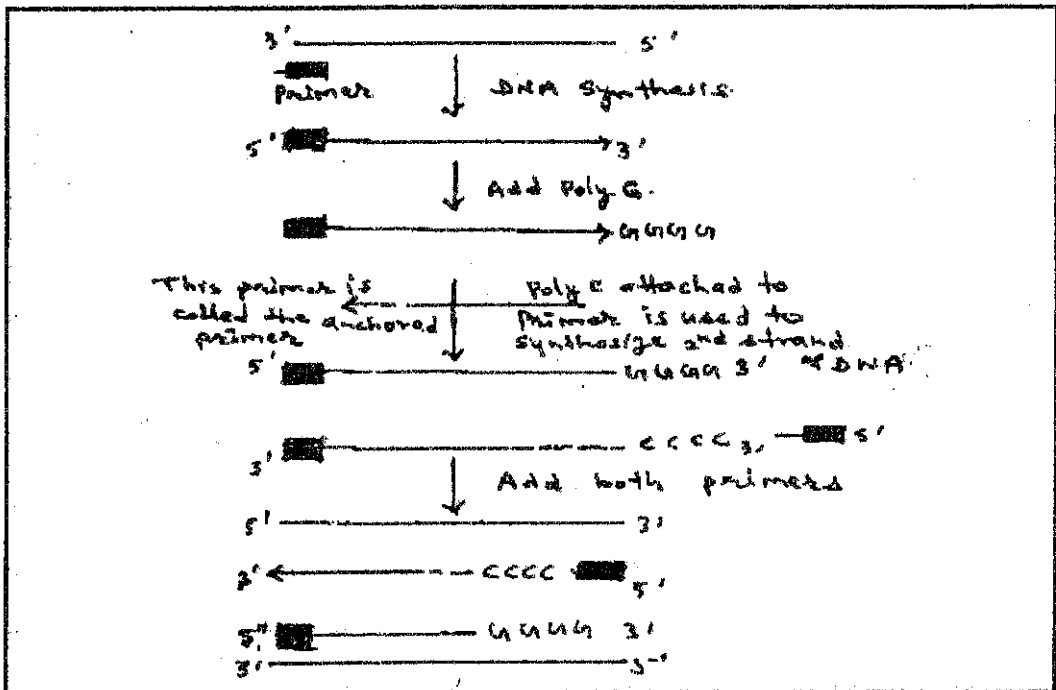 3' 5'
Primer DNA Synthesis.
5' 3'
Add Poly G.
GGGG
This primer is
called the anchored
primer
Poly C attached to
Primer is used to
synthesize 2nd strand
of DNA
5' GGGG 3'
3' CCCC 3' 5'
Add both primers
5' 3'
3' CCCC 5'
5' GGGG 3'
3' 5'